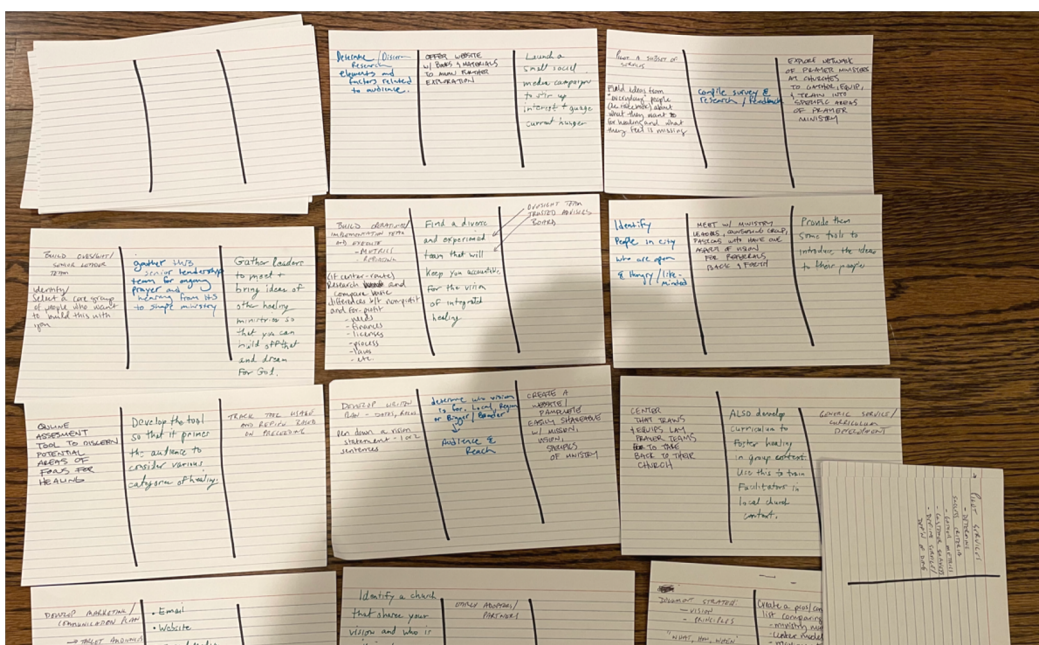 Delineate / Discern
Research
elements and
factors related
to audience.
OFFER WEBSITE
W/ BOOKS & MATERIALS
TO ALLOW FURTHER
EXPLORATION
Launch a
small social
media campaign
to stir up
interest + guage
current hunger
Field ideas from
"everyday" people
about
what they want to
for healing and what
they feel is missing
Compile survey &
research / feedback
EXPLORE NETWORK
OF PRAYER MINISTERS
AT CHURCHES
TO GATHER, EQUIP,
& TRAIN INTO
SPECIFIC AREAS
OF PRAYER
MINISTRY
BUILD OVERSIGHT/
SENIOR
TEAM
Identify/
Select a core group
of people who want
to build this with
you
gather this
senior leadership
team for ongoing
prayer and
hearing from HS
to shape ministry
Gather leaders
to meet +
bring ideas of
other healing
ministries so
that you can
build off that
and dream
for God.
BUILD OPERATIONS/
IMPLEMENTATION TEAM
(if center-route)
Research and
compare
differences b/t nonprofit
and for-profit
- needs
- finances
- licenses
- process
- laws
- etc.
Find a diverse
and experienced
team that will
Keep you accountable
for the vision
of integrated
healing.
OVERSIGHT TEAM
TRUSTED ADVISERS,
BOARD
Identify
People in city
who are open
& hungry / like-
minded
MEET W/ MINISTRY
LEADERS,
PASTORS WHO HAVE
ASPECTS OF VISION
FOR
BACK & FORTH
Provide them
some tools to
introduce the idea
to their people
ONLINE
ASSESMENT
TOOL TO DISCERN
POTENTIAL
AREAS OF
FOCUS FOR
HEALING
Develop the tool
so that it primes
the audience to
consider various
categories of healing.
TRACK TOOL USAGE
AND REFINE BASED
ON
DEVELOP VISION
PLAN
Pen down a vision
statement - 1 or 2
sentences
determine who vision
is for: Local, Region
or Bigger/Broader
Audience &
Reach
CREATE A
WEBSITE/
PAMPHLETE
EASILY SHAREABLE
W/ MISSION,
WHEN,
SPECIFICS
OF MINISTRY
CENTER
THAT TRAINS
& EQUIPS LAY
PRAYER TEAMS
TO TAKE
BACK TO THEIR
CHURCH
ALSO develop
curriculum to
foster healing
in group context
Use this to train
Facilitators in
local church
context.
GENERIC SERVICE/
CURRICULUM
DEVELOPMENT
PILOT SERVICES
- DETERMINE
SUCCESS CRITERIA
- METRICS
- CUSTOMER
- DEFINE SERVICES/
DEVELOP MARKETING/
COMMUNICATION PLAN
→ TARGET AUDIENCE
• Email
• Website
Identify a church
that shares your
vision and who is
OTHER
PARTNERS
DOCUMENT STRATEGY
- VISION
- PRINCIPLES
"WHAT, HOW, WHEN"
Create a
list comparing
- ministry